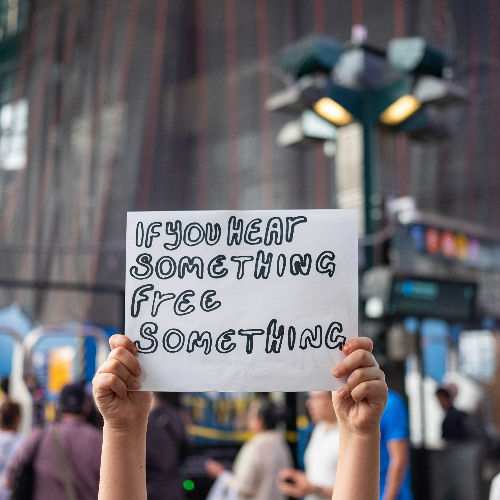 IF YOU HEAR
SOMETHING
Free
SOMETHING